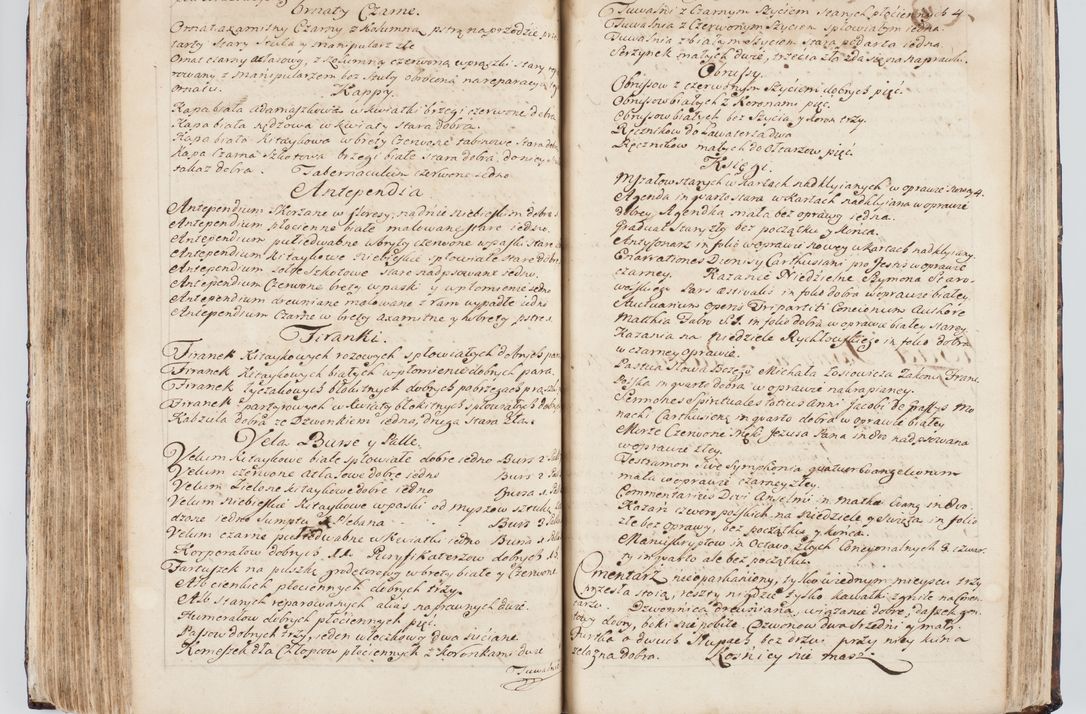 Ornaty Czarne.
Ornat axamitny Czarny z kolumną pstrą na przodzie prze
tarty stary Stuła y manipularz złe
Ornat czarny atłasowy, z kolumną czerwoną w prążki stary
rowany z manipularzem bez Stuły obrócona na reparacyą
ornatu.
Kappy.
Kapa biała adamaszkowa w kwiatki brzegi czerwone dobra
Kapa biała w kwiaty stara dobra.
Kapa biała kitaykowa w brety czerwone tabinowe stara dobra
Kapa Czarna Szkotowa brzegi białe stara dobra, do niey
takaż dobra. Tabernaculum czerwone jedno
Antependia
Antependium Skorzane w floresy, na dnie niebieskim dobre
Antependium płócienne białe malowane stare jedno.
Antependium pułjedwabne w bryty czerwone w paski stare
Antependium kitaykowe niebieskie spłowiałe stare dobre
Antependium Szkotowe stare nadpsowane jedno.
Antependium Czerwone brety w paski y w płomienie jedno
Antependium drewniane malowane z ram wypadłe jedno
Antependium Czarne w brety axamitne y brety pstre 1.
Firanki.
Firanek kitaykowych rozowych spłowiałych dobrych par
Firanek kitaykowych białych w płomienie dobrych para.
Firanek błękitnych dobrych
Firanek partyrowych w kwiaty błękitnych spłowiałych dobrych
Kabzula dobra ze Dzwonkiem jedna, druga stara zła.
Vela Burse y Palle.
Velum kitaykowe białe spłowiałe dobre jedno Burs 2
Velum czerwone atłasowe dobre jedno Burs 2
Velum Zielone kitaykowe dobre jedno Bursa 1.
Velum niebieskie kitaykowe w paski od myszow sztuką
dzone jedno Sumptu Plebana Burs 2.
Velum czarne pułjedwabne w kwiatki jedno Bursa 1
Korporałow dobrych 11. Puryfikaterzow dobrych
Fartuszek na puszkę w brety białe y Czerwone
Alb cienkich płóciennych dobrych trzy.
Alb starych reparowanych alias naprawnych dwie.
Humerałow dobrych płóciennych pięć.
Passow dobrych trzy, jeden włóczkowy dwa niciane
Komeszek dla Chłopcow płóciennych z koronkami dwie
Tuwalnie
Tuwalni z Czarnym szyciem starych płóciennych 4
Tuwalnia z Czerwonym szyciem spłowiałym jedna.
Tuwalnia z białym szyciem stara podarta jedna
małych dwie, trzecia zła zda się na naprawki.
Obrussy.
Obrussow z czerwonym szyciem dobrych pięć.
Obrussow białych z Koronami pięć.
Obrussow białych bez szycia y koron trzy.
Ręcznikow do Lawaterza dwa
Ręcznikow małych do Ołtarzow pięć.
Księgi.
Mszałow starych w kartach nadklejanych w oprawie starey 4.
Agenda in quarto stara w kartach nadklejana w oprawie
dobrey Agendka mała bez oprawy jedna.
Graduał stary zły bez początku y końca.
Antyfonarz in folio w oprawie nowey w kartach nadklejany
Enarrationes Dionisy Carthusiani pro Festis w oprawie
czarney. Kazania Niedzielne Szymona Staro-
wolskiego Pars aestivalis in folio dobra w oprawie białey.
Auctuarium operis Tripartiti Concionum Authore
Matthia Fabro S.J. in folio dobra w oprawie białey starey.
Kazania na Niedziele Rychłowskiego in folio dobra
w czarney oprawie.
Pastwa Słowa Bożego Michała Zakonu Franc
in quarto dobra w oprawie nakrapianey
Sermones Spirituales totius anni Jacobi de Mo
nach Carthusiens in quarto dobra w oprawie białey
Morze Czerwone Męki Jezusa Pana in 4to nadpsowana
w oprawie złey.
Tessaramon sive Symphonia quatuor Evangeliorum
mała w oprawie czarney złey.
Commentarius Divi Anselmi in Mattheum Evang in 8vo.
Kazań czworo polskich na Niedziele y Swięta in folio
złe bez oprawy, bez początku y końca.
Manuskryptow in Octavo złych Concyonalnych 3. czwar
ty in quarto ale bez początku.
Cmentarz nieoparkaniony, tylko w jednym mieyscu trzy
Przęsła stoią, reszty nigdzie tylko kawałki zgniłe na Cmen
tarzu. Dzwonnica drewniana, wiązanie dobre, daszek gon-
towy dobry, boki nie pobite. Dzwonow dwa średni y mały.
Furtka o dwuch Słupach bez drzwi przy niey kuna
żelazna dobra. Kośnicy nie masz.